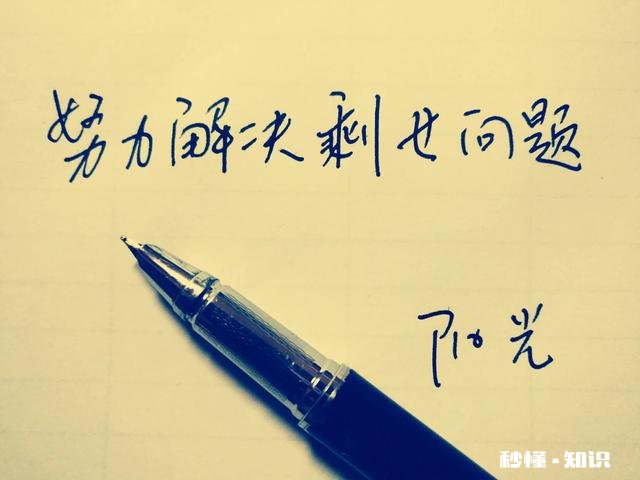 努力解决剩女问题
阳光
秒懂-知识